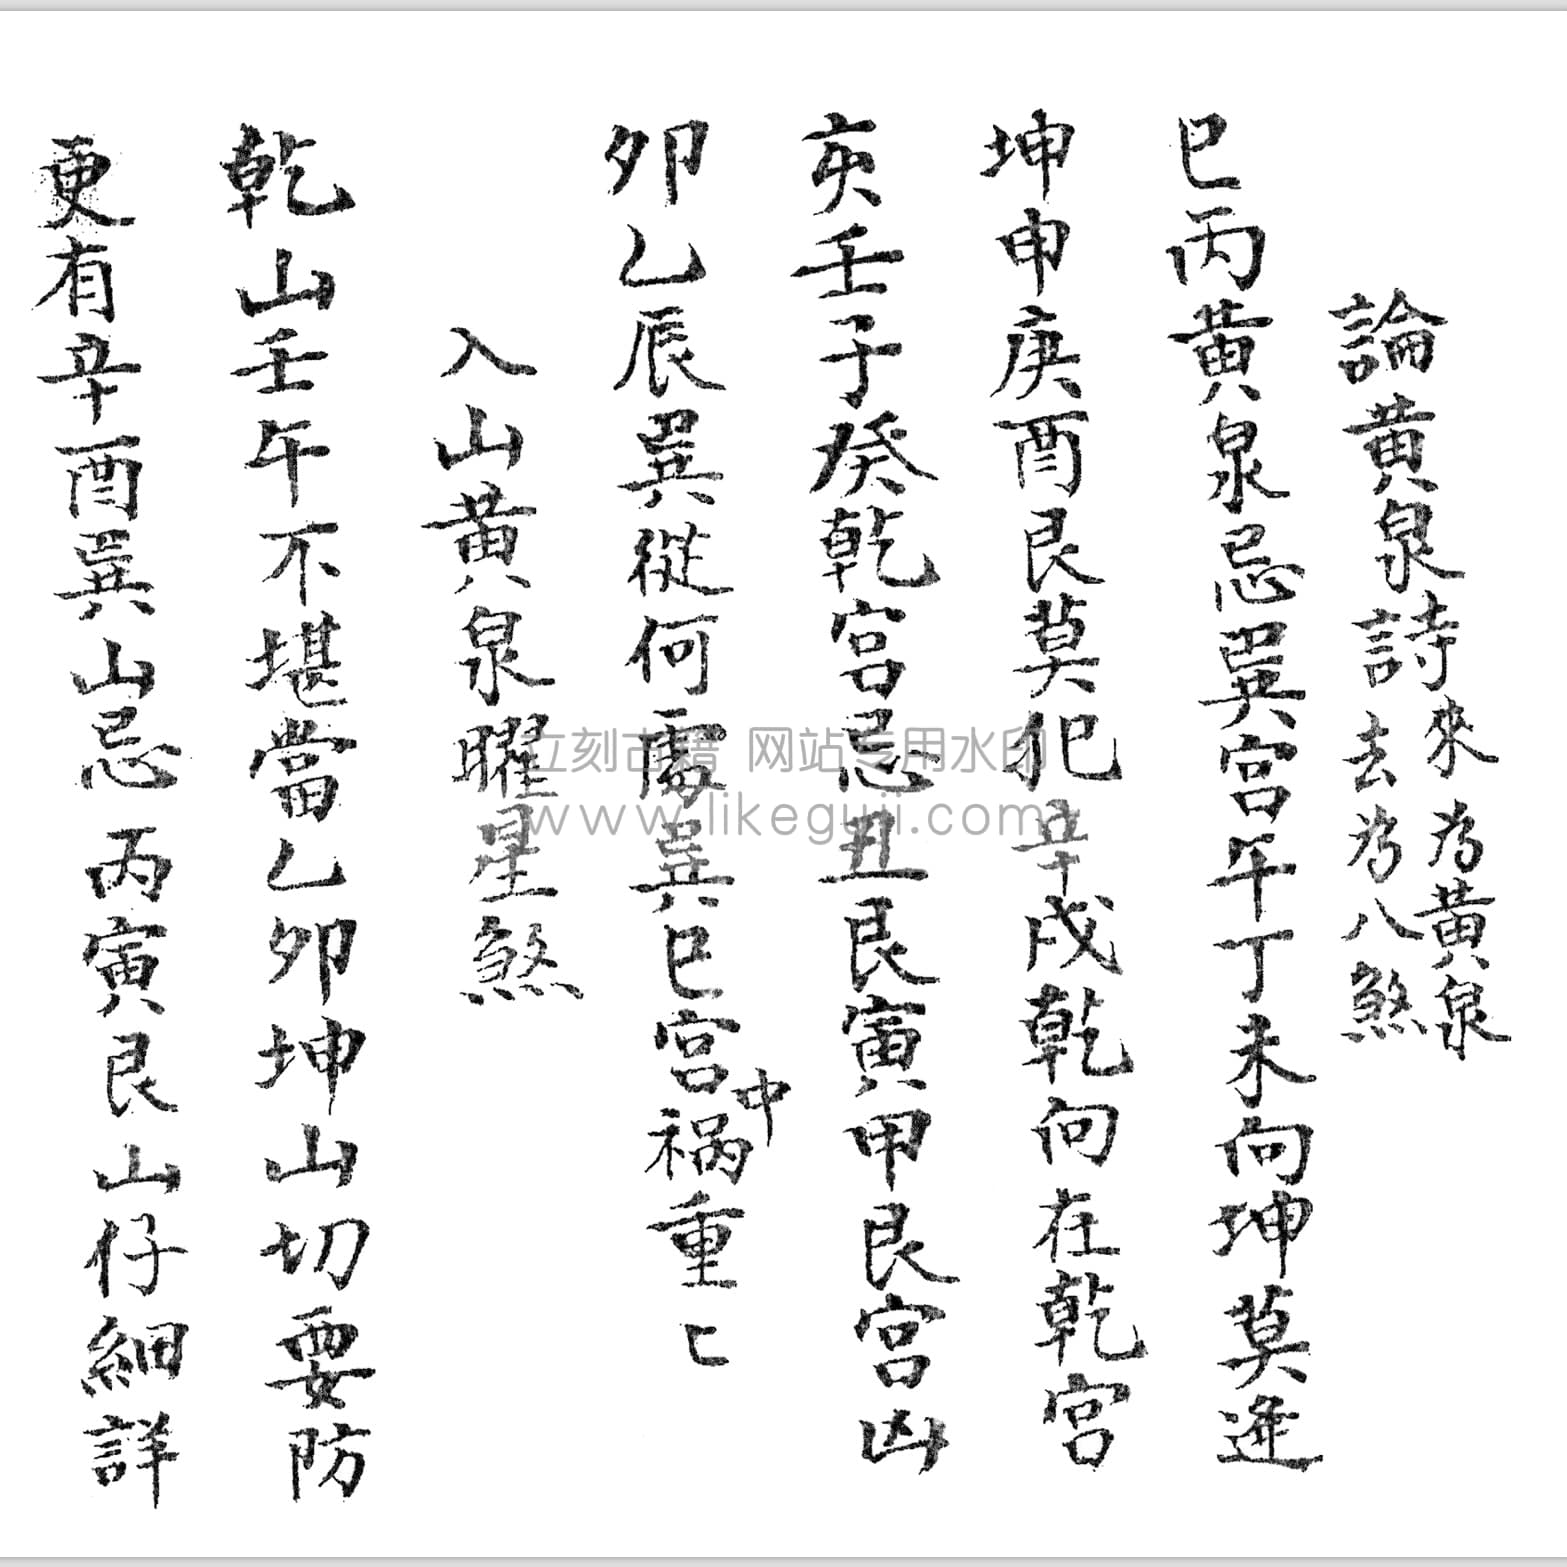 論黄泉詩 來为黄泉 去为八煞
巳丙黄泉忌巽宫午丁未向坤莫逢
坤申庚酉艮莫犯辛戌乾向在乾宫
亥壬子癸乾宫忌丑艮寅甲艮宫凶
卯乙辰巽從何處巽巳宫中祸重匕
入山黄泉曜星煞
乾山壬午不堪當乙卯坤山切要防
更有辛酉巽山忌丙寅艮山仔細詳
立刻古籍 网站专用水印
www.likeguji.com